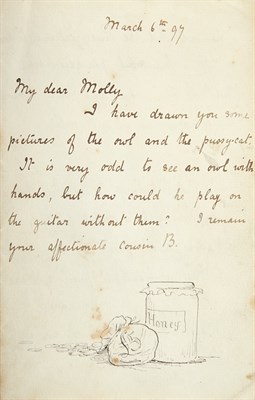 March 6th 97
My dear Molly
I have drawn you some
pictures of the owl and the pussy-cat.
It is very odd to see an owl with
hands, but how could he play on
the guitar without them? I remain
your affectionate cousin B.
Honey